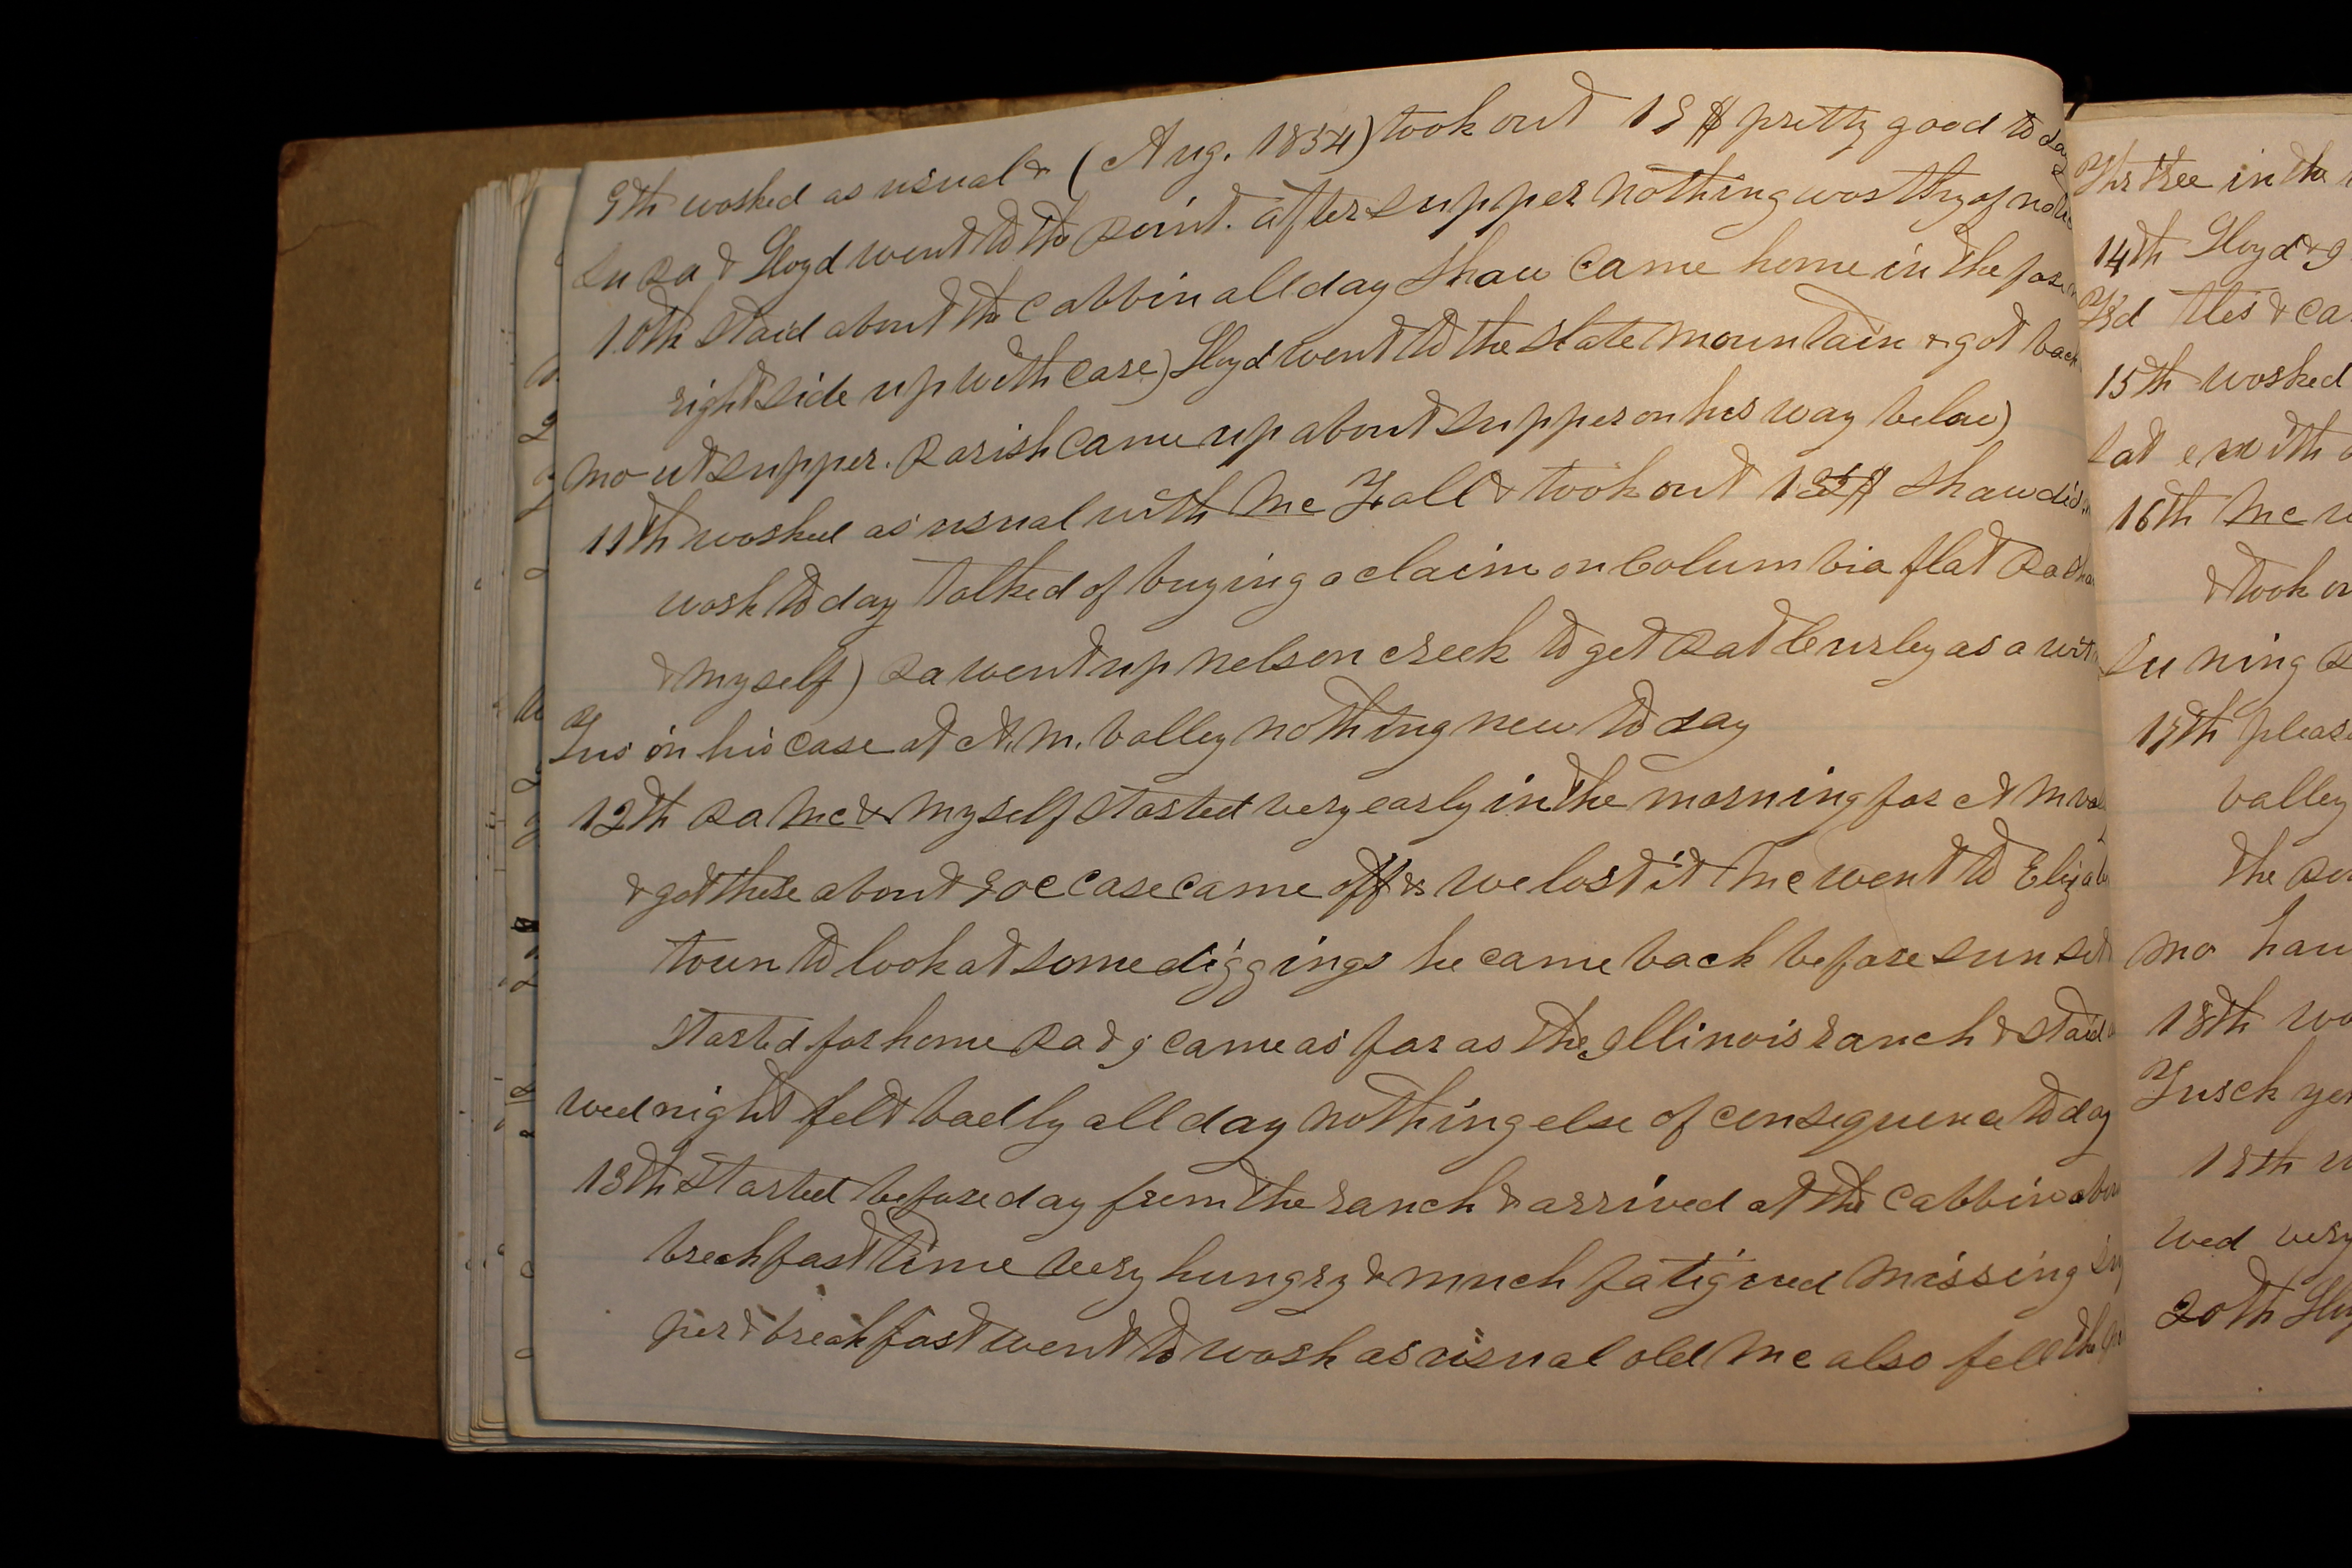 9th worked as usual & (Aug. 1854) took out 19 $ pretty good to day
Su Pa & Lloyd went to the Point. after supper nothing worthy of note
10th Staid about the Cabbin all day Shaw Came home in the fore
right side up with Care) Lloyd went to the slate mountain & got back
mo ut supper. Parish Came up about supper on his way below)
11th worked as usual with Mc Fall & took out Shaw did
work to day talked of buying a claim on Columbia flat Pa Shaw
& myself) Pa went up nelson creek to get Pat Curley as a wit
Tus in his case at A. M. Valley nothing new to day
12th Pa Mc & myself started very early in the morning for A M val
& got there about 9 oc Case came off & we lost it Mc went to Elizab
town to look at some diggings he came back before sun set
started for home Pa & I came as far as the Illinois ranch & staid
wed night felt badly all day nothing else of consequence to day
13th Started before day from the ranch & arrived at the Cabbin about
breakfast time very hungry & much fatigued missing sup
per & breakfast went to work as usual old Mc also fell the
Thr tree in the
14th Lloyd & I
Frd this & ca
15th worked
Sat e with
16th Mc w
& took ou
Su ning
17th pleas
Valley
the
mo haw
18th wo
Tusck yes
19th w
wed very
20th Lloy